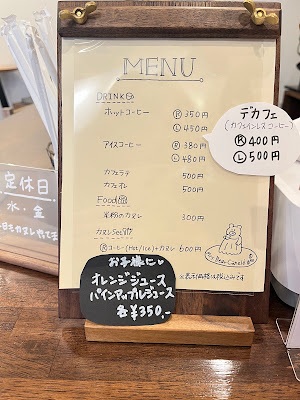 MENU
DRINK
ホットコーヒー Ⓡ 350円
Ⓛ 450円
アイスコーヒー Ⓡ 380円
Ⓛ 480円
カフェラテ 500円
カフェオレ 500円
Food
米粉のカヌレ 300円
カヌレset
Ⓡコーヒー(Hot/Ice)+カヌレ 600円
※表示価格は税込みです
デカフェ
(カフェインレスコーヒー)
Ⓡ 400円
Ⓛ 500円
お子様に♡
オレンジジュース
パインアップルジュース
各¥350.-
定休日
水・金